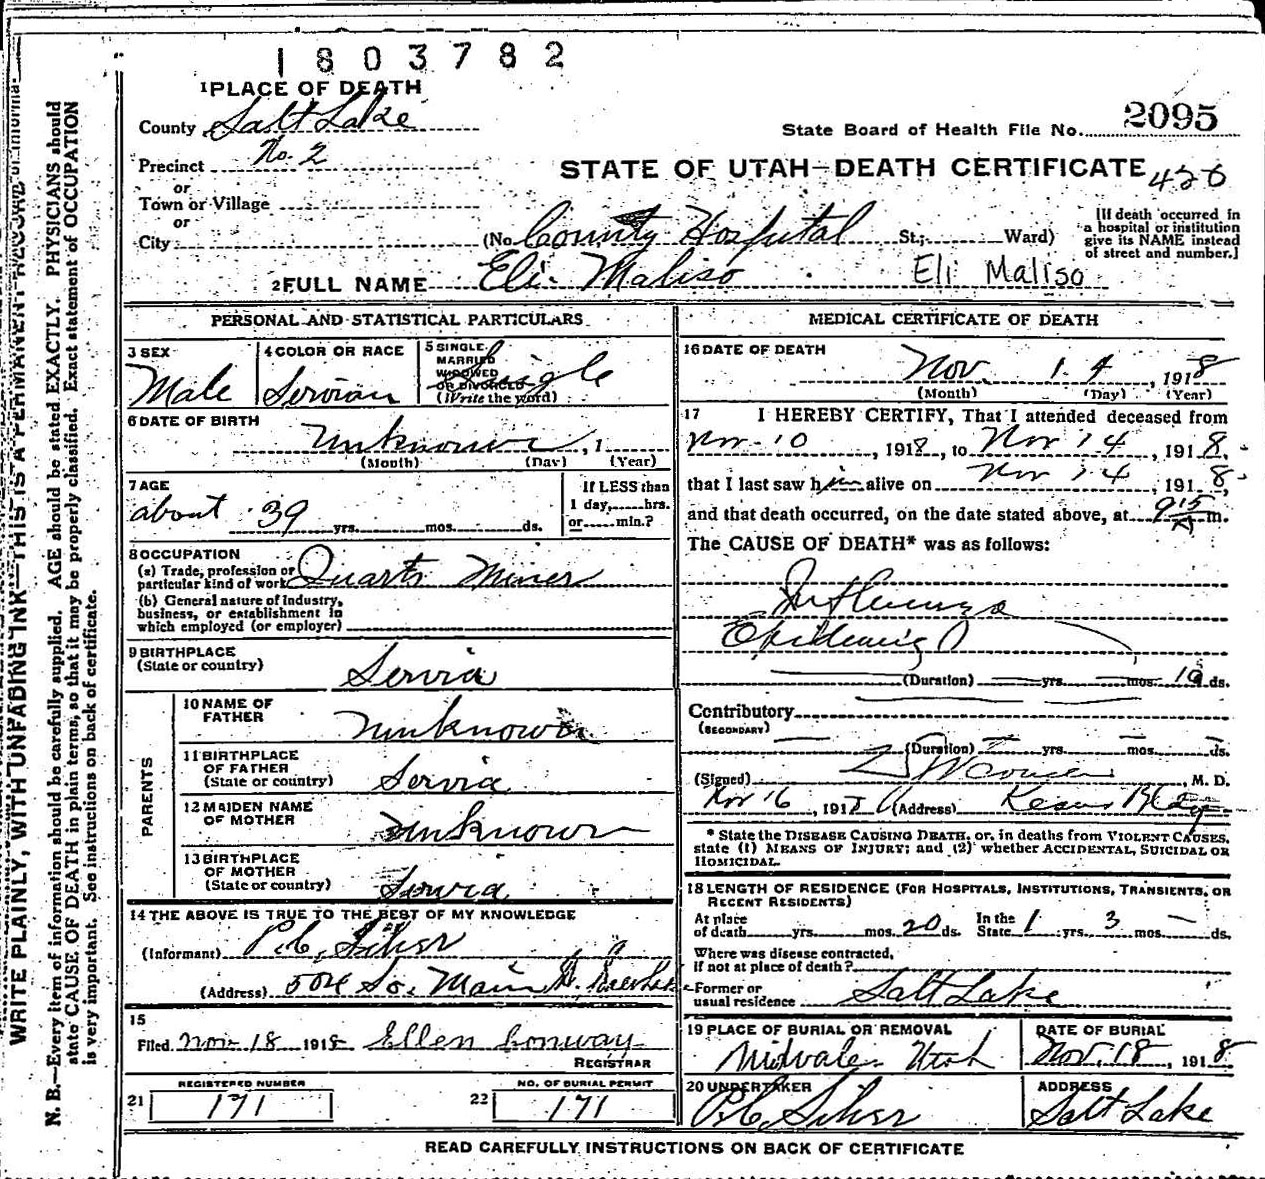 1803782
1 PLACE OF DEATH
County Salt Lake
State Board of Health File No. 2095
Precinct No. 2
STATE OF UTAH—DEATH CERTIFICATE 426
or
Town or Village
or
City (No. County Hospital St.; Ward)
[If death occurred in
a hospital or institution
give its NAME instead
of street and number.]
2 FULL NAME Eli Maliso Eli Maliso
PERSONAL AND STATISTICAL PARTICULARS
3 SEX
Male
4 COLOR OR RACE
Servian
5 SINGLE
MARRIED
WIDOWED
OR DIVORCED
(Write the word)
Single
6 DATE OF BIRTH
Unknown, 1
(Month) (Day) (Year)
7 AGE
about 39 yrs. mos. ds.
If LESS than
1 day, hrs.
or min.?
8 OCCUPATION
(a) Trade, profession or
particular kind of work Quarts Miner
(b) General nature of industry,
business, or establishment in
which employed (or employer)
9 BIRTHPLACE
(State or country) Servia
PARENTS
10 NAME OF
FATHER Unknown
11 BIRTHPLACE
OF FATHER
(State or country) Servia
12 MAIDEN NAME
OF MOTHER Unknown
13 BIRTHPLACE
OF MOTHER
(State or country) Servia
14 THE ABOVE IS TRUE TO THE BEST OF MY KNOWLEDGE
(Informant) P.C. Silver
(Address) 504 So. Main St.
15
Filed Nov 18 1918 Ellen Conway
REGISTRAR
REGISTERED NUMBER
21 171
NO. OF BURIAL PERMIT
22 171
MEDICAL CERTIFICATE OF DEATH
16 DATE OF DEATH
Nov 14, 1918
(Month) (Day) (Year)
17 I HEREBY CERTIFY, That I attended deceased from
Nov 10, 1918, to Nov 14, 1918,
that I last saw him alive on Nov 14, 1918,
and that death occurred, on the date stated above, at 9 15 A m.
The CAUSE OF DEATH* was as follows:
Influenza
Epidemic
(Duration) yrs. mos. 10 ds.
Contributory
(SECONDARY)
(Duration) yrs. mos. ds.
(Signed) M. D.
Nov 16, 1918 (Address) Kearns Bldg
* State the DISEASE CAUSING DEATH, or, in deaths from VIOLENT CAUSES,
state (1) MEANS OF INJURY; and (2) whether ACCIDENTAL, SUICIDAL OR
HOMICIDAL.
18 LENGTH OF RESIDENCE (FOR HOSPITALS, INSTITUTIONS, TRANSIENTS, OR
RECENT RESIDENTS)
At place
of death yrs. mos. 20 ds.
In the
State 1 yrs. 3 mos. — ds.
Where was disease contracted,
if not at place of death?
Former or
usual residence Salt Lake
19 PLACE OF BURIAL OR REMOVAL
Midvale Utah
DATE OF BURIAL
Nov. 18, 1918
20 UNDERTAKER
P.C. Silver
ADDRESS
Salt Lake
READ CAREFULLY INSTRUCTIONS ON BACK OF CERTIFICATE
WRITE PLAINLY, WITH UNFADING INK—THIS IS A PERMANENT RECORD
N. B.—Every item of information should be carefully supplied. AGE should be stated EXACTLY. PHYSICIANS should
state CAUSE OF DEATH in plain terms, so that it may be properly classified. Exact statement of OCCUPATION
is very important. See instructions on back of certificate.